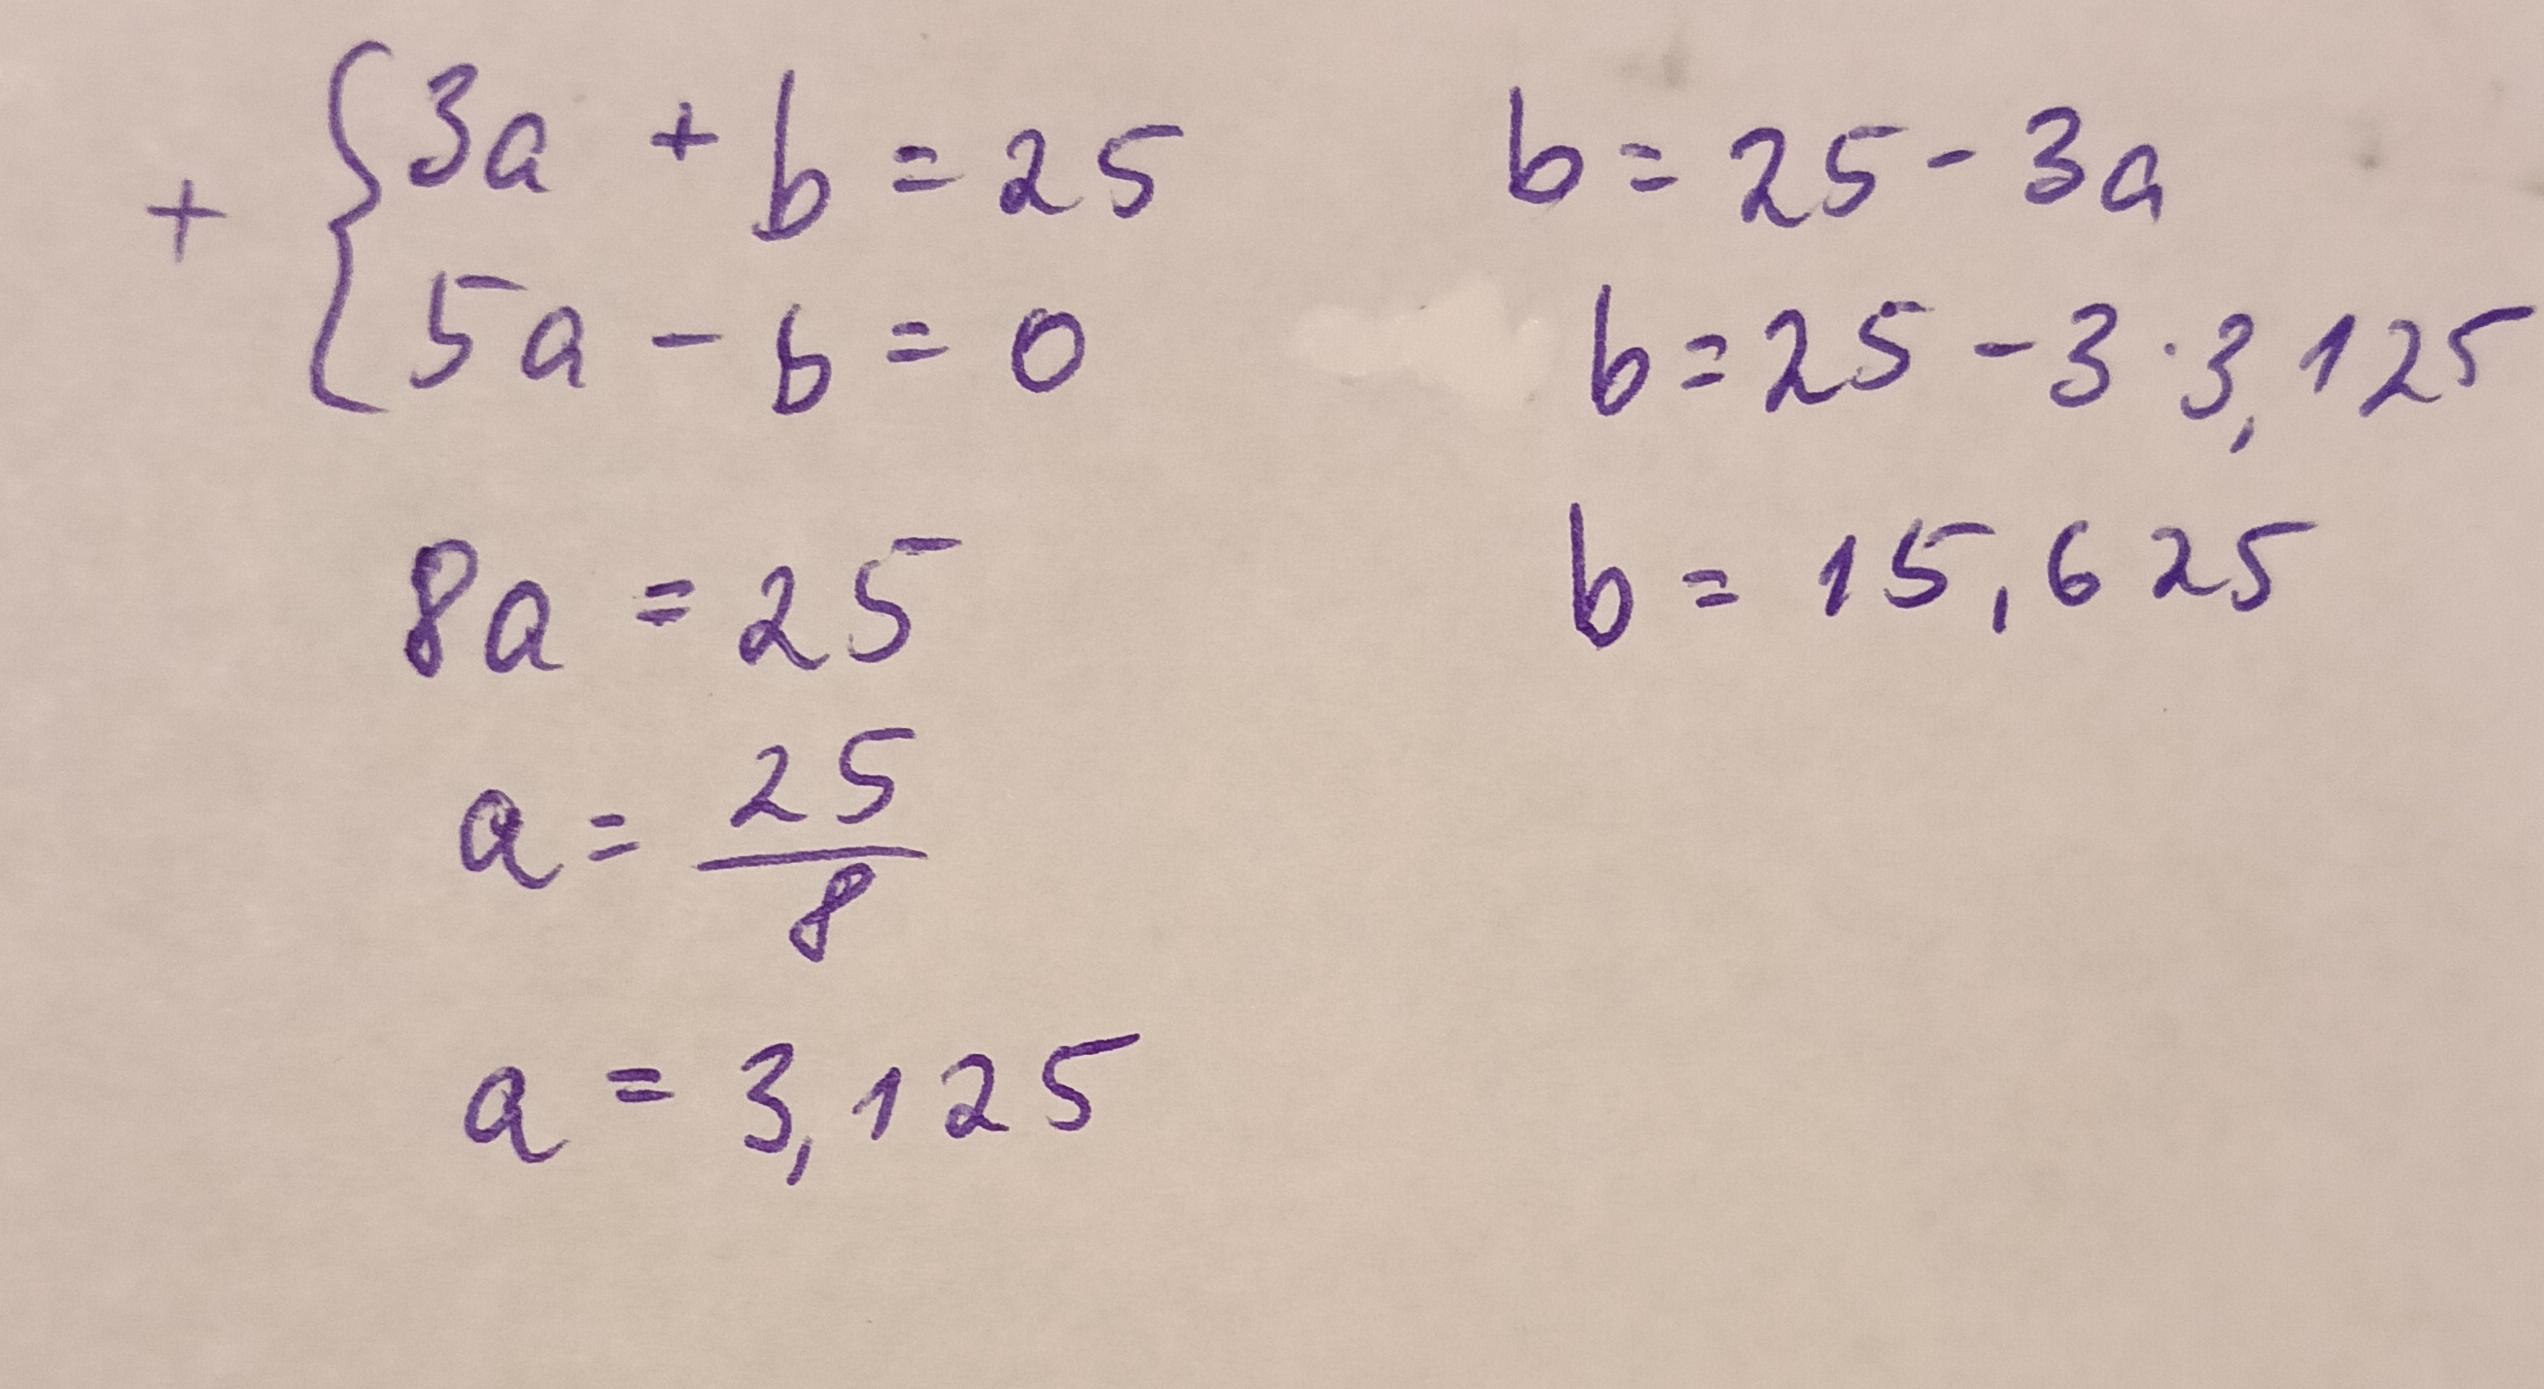 + { 3a + b = 25
5a - b = 0
8a = 25
a = 25/8
a = 3,125
b = 25 - 3a
b = 25 - 3 · 3,125
b = 15,625